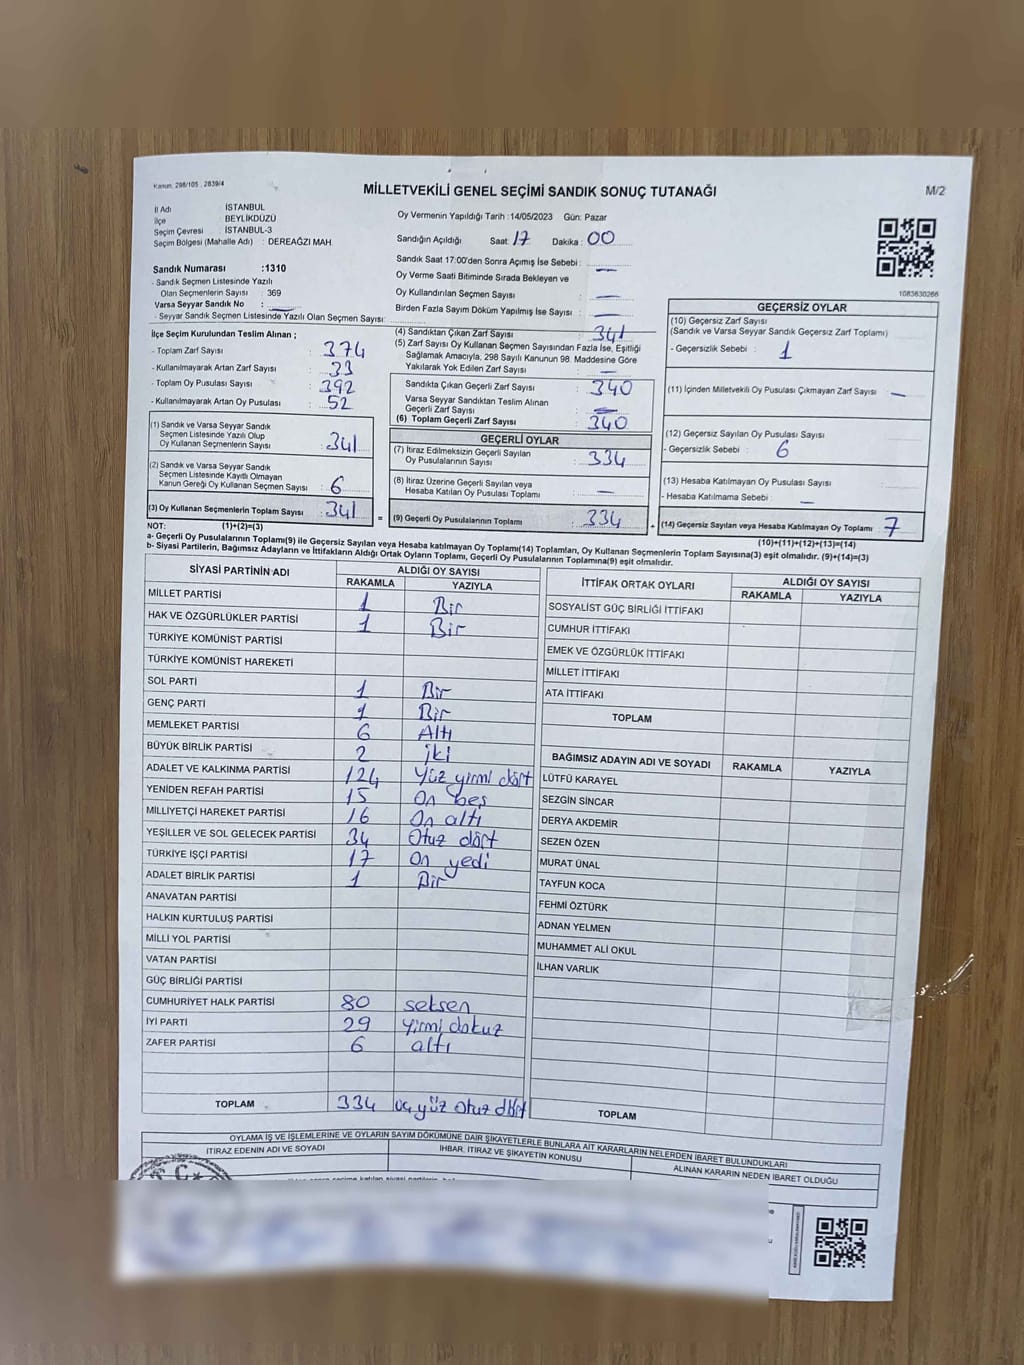 Kanun: 298/105 , 2839/4
MİLLETVEKİLİ GENEL SEÇİMİ SANDIK SONUÇ TUTANAĞI
M/2
İl Adı : İSTANBUL
İlçe : BEYLİKDÜZÜ
Seçim Çevresi : İSTANBUL-3
Seçim Bölgesi (Mahalle Adı) : DEREAĞZI MAH.
Sandık Numarası :1310
- Sandık Seçmen Listesinde Yazılı
Olan Seçmenlerin Sayısı : 369
Varsa Seyyar Sandık No : —
- Seyyar Sandık Seçmen Listesinde Yazılı Olan Seçmen Sayısı:
Oy Vermenin Yapıldığı Tarih :14/05/2023 Gün: Pazar
Sandığın Açıldığı Saat: 17 Dakika: 00
Sandık Saat 17:00'den Sonra Açımış İse Sebebi : —
Oy Verme Saati Bitiminde Sırada Bekleyen ve
Oy Kullandırılan Seçmen Sayısı : —
Birden Fazla Sayım Döküm Yapılmış İse Sayısı : —
1083630266
İlçe Seçim Kurulundan Teslim Alınan ;
- Toplam Zarf Sayısı : 374
- Kullanılmayarak Artan Zarf Sayısı : 33
- Toplam Oy Pusulası Sayısı : 392
- Kullanılmayarak Artan Oy Pusulası : 52
(1) Sandık ve Varsa Seyyar Sandık
Seçmen Listesinde Yazılı Olup
Oy Kullanan Seçmenlerin Sayısı : 341
(2) Sandık ve Varsa Seyyar Sandık
Seçmen Listesinde Kayıtlı Olmayan
Kanun Gereği Oy Kullanan Seçmen Sayısı : 6
(3) Oy Kullanan Seçmenlerin Toplam Sayısı : 341
(1)+(2)=(3)
(4) Sandıktan Çıkan Zarf Sayısı : 341
(5) Zarf Sayısı Oy Kullanan Seçmen Sayısından Fazla İse, Eşitliği
Sağlamak Amacıyla, 298 Sayılı Kanunun 98. Maddesine Göre
Yakılarak Yok Edilen Zarf Sayısı : —
Sandıkta Çıkan Geçerli Zarf Sayısı : 340
Varsa Seyyar Sandıktan Teslim Alınan
Geçerli Zarf Sayısı : —
(6) Toplam Geçerli Zarf Sayısı : 340
GEÇERLİ OYLAR
(7) İtiraz Edilmeksizin Geçerli Sayılan
Oy Pusulalarının Sayısı : 334
(8) İtiraz Üzerine Geçerli Sayılan veya
Hesaba Katılan Oy Pusulası Toplamı : —
= (9) Geçerli Oy Pusulalarının Toplamı : 334 +
GEÇERSİZ OYLAR
(10) Geçersiz Zarf Sayısı
(Sandık ve Varsa Seyyar Sandık Geçersiz Zarf Toplamı)
- Geçersizlik Sebebi : 1
(11) İçinden Milletvekili Oy Pusulası Çıkmayan Zarf Sayısı : —
(12) Geçersiz Sayılan Oy Pusulası Sayısı
- Geçersizlik Sebebi : 6
(13) Hesaba Katılmayan Oy Pusulası Sayısı
- Hesaba Katılmama Sebebi : —
(14) Geçersiz Sayılan veya Hesaba Katılmayan Oy Toplamı : 7
(10)+(11)+(12)+(13)=(14)
NOT:
a- Geçerli Oy Pusulalarının Toplamı(9) ile Geçersiz Sayılan veya Hesaba katılmayan Oy Toplamı(14) Toplamları, Oy Kullanan Seçmenlerin Toplam Sayısına(3) eşit olmalıdır. (9)+(14)=(3)
b- Siyasi Partilerin, Bağımsız Adayların ve İttifakların Aldığı Ortak Oyların Toplamı, Geçerli Oy Pusulalarının Toplamına(9) eşit olmalıdır.
SİYASİ PARTİNİN ADI ALDIĞI OY SAYISI
RAKAMLA YAZIYLA
MİLLET PARTİSİ 1 Bir
HAK VE ÖZGÜRLÜKLER PARTİSİ 1 Bir
TÜRKİYE KOMÜNİST PARTİSİ
TÜRKİYE KOMÜNİST HAREKETİ
SOL PARTİ 1 Bir
GENÇ PARTİ 1 Bir
MEMLEKET PARTİSİ 6 Altı
BÜYÜK BİRLİK PARTİSİ 2 iki
ADALET VE KALKINMA PARTİSİ 124 Yüz yirmi dört
YENİDEN REFAH PARTİSİ 15 On beş
MİLLİYETÇİ HAREKET PARTİSİ 16 On altı
YEŞİLLER VE SOL GELECEK PARTİSİ 34 Otuz dört
TÜRKİYE İŞÇİ PARTİSİ 17 On yedi
ADALET BİRLİK PARTİSİ 1 Bir
ANAVATAN PARTİSİ
HALKIN KURTULUŞ PARTİSİ
MİLLİ YOL PARTİSİ
VATAN PARTİSİ
GÜÇ BİRLİĞİ PARTİSİ
CUMHURİYET HALK PARTİSİ 80 seksen
İYİ PARTİ 29 Yirmi dokuz
ZAFER PARTİSİ 6 altı
TOPLAM 334 üç yüz otuz dört
İTTİFAK ORTAK OYLARI ALDIĞI OY SAYISI
RAKAMLA YAZIYLA
SOSYALİST GÜÇ BİRLİĞİ İTTİFAKI
CUMHUR İTTİFAKI
EMEK VE ÖZGÜRLÜK İTTİFAKI
MİLLET İTTİFAKI
ATA İTTİFAKI
TOPLAM
BAĞIMSIZ ADAYIN ADI VE SOYADI RAKAMLA YAZIYLA
LÜTFÜ KARAYEL
SEZGİN SİNCAR
DERYA AKDEMİR
SEZEN ÖZEN
MURAT ÜNAL
TAYFUN KOCA
FEHMİ ÖZTÜRK
ADNAN YELMEN
MUHAMMET ALİ OKUL
İLHAN VARLIK
TOPLAM
OYLAMA İŞ VE İŞLEMLERİNE VE OYLARIN SAYIM DÖKÜMÜNE DAİR ŞİKAYETLERLE BUNLARA AİT KARARLARIN NELERDEN İBARET BULUNDUKLARI
İTİRAZ EDENİN ADI VE SOYADI
İHBAR, İTİRAZ VE ŞİKAYETİN KONUSU
ALINAN KARARIN NEDEN İBARET OLDUĞU